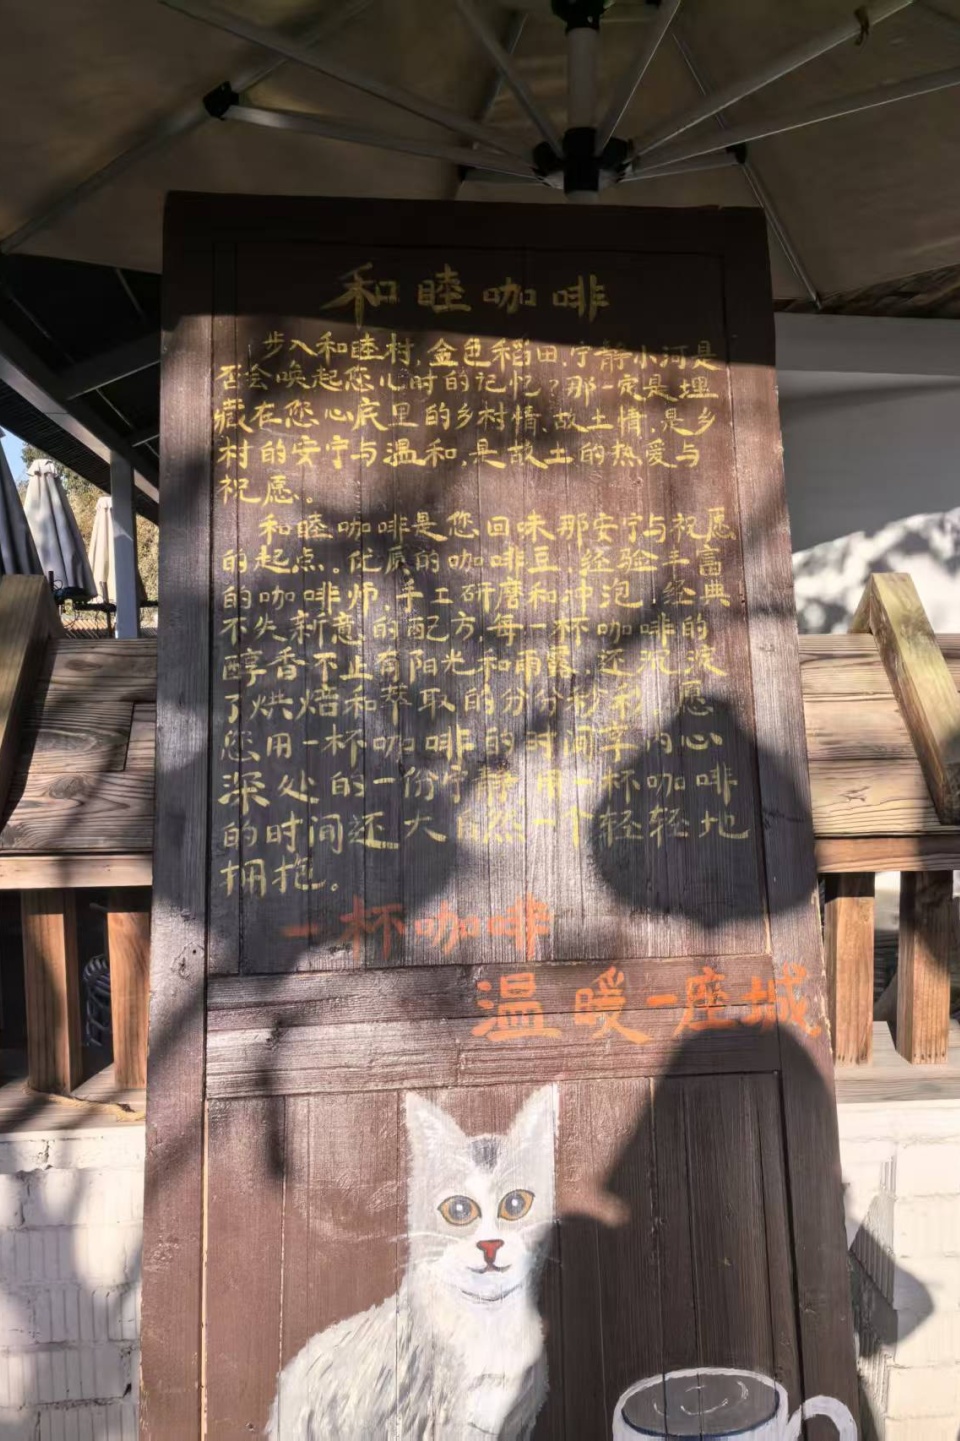 和睦咖啡
步入和睦村,金色稻田,宁静小河是
否会唤起您儿时的记忆?那一定是埋
藏在您心底里的乡村情、故土情,是乡
村的安宁与温和,是故土的热爱与
祝愿。
和睦咖啡是您回味那安宁与祝愿
的起点。优质的咖啡豆,经验丰富
的咖啡师,手工研磨和冲泡,经典
不失新意的配方,每一杯咖啡的
醇香不止有阳光和雨露,还沉淀
了烘焙和萃取的分分秒秒,愿
您用一杯咖啡的时间享内心
深处的一份宁静,用一杯咖啡
的时间还大自然一个轻轻地
拥抱。
一杯咖啡
温暖一座城